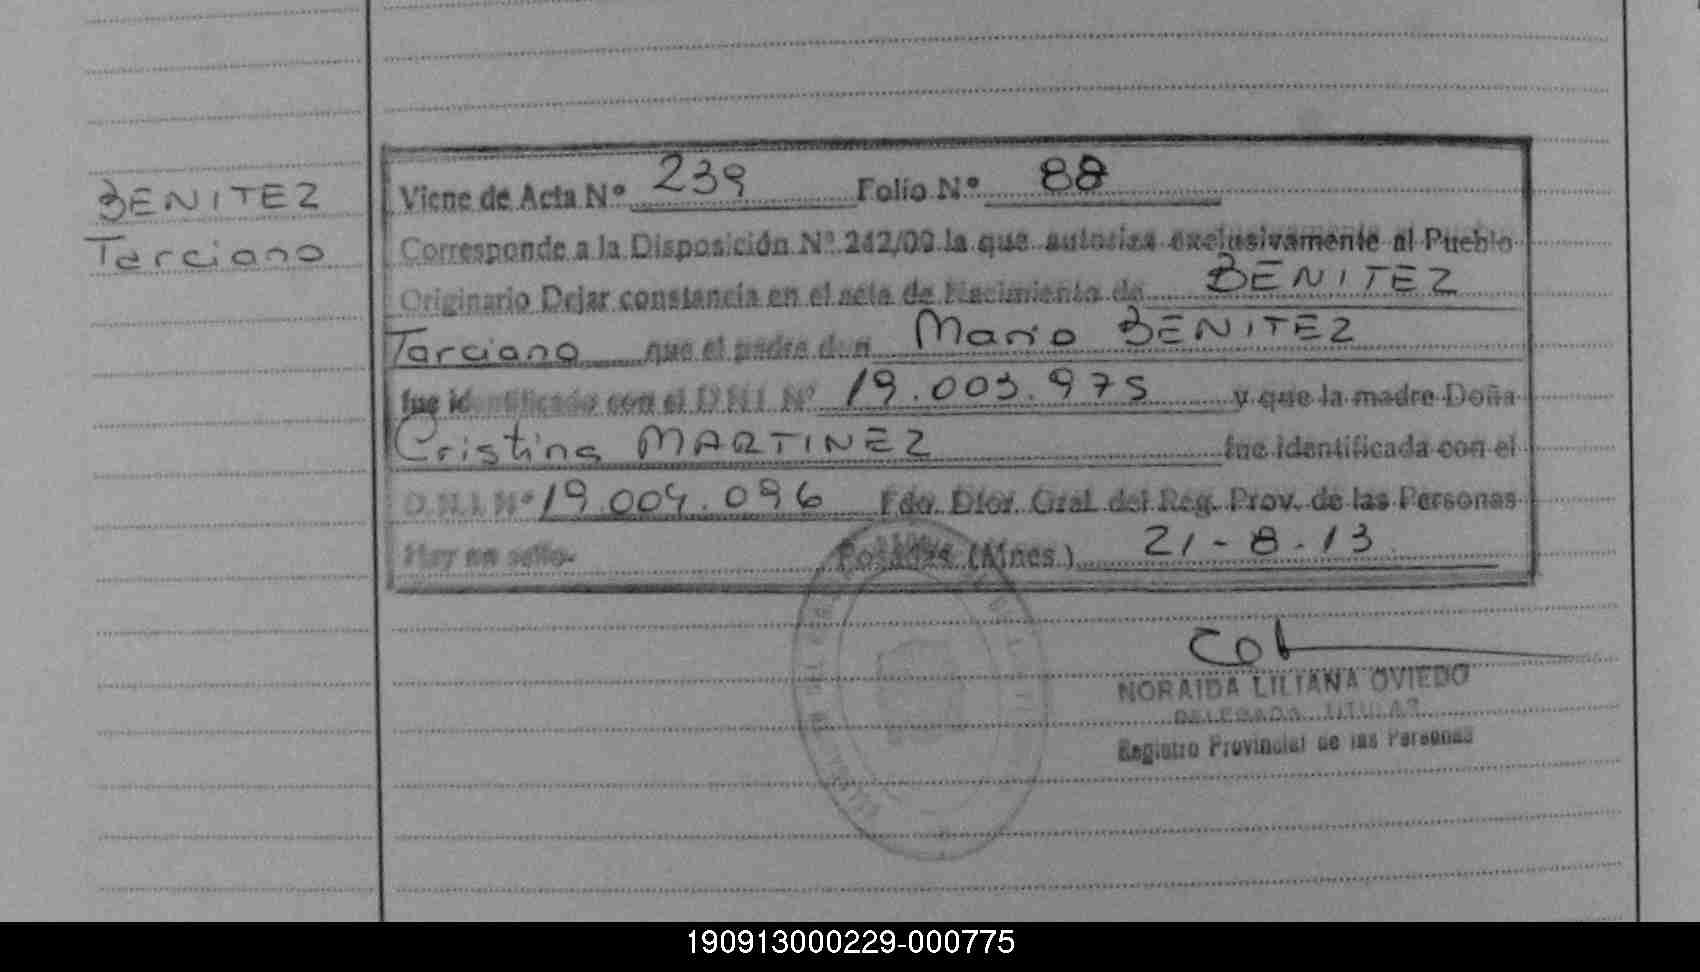 BENITEZ
Tarciano
Viene de Acta Nº 239 Folio Nº 88
Corresponde a la Disposición Nº 242/00 la que autoriza exclusivamente al Pueblo
Originario Dejar constancia en el acta de Nacimiento de BENITEZ
Tarciano que el padre don Mario BENITEZ
fue identificado con el D.N.I. Nº 19.003.975 y que la madre Doña
Cristina MARTINEZ fue identificada con el
D.N.I. Nº 19.004.096 Fdo. Dtor. Gral. del Reg. Prov. de las Personas
Hay un sello. Posadas (Mnes.) 21-8-13
NORAIDA LILIANA OVIEDO
DELEGADA TITULAR
Registro Provincial de las Personas
190913000229-000775